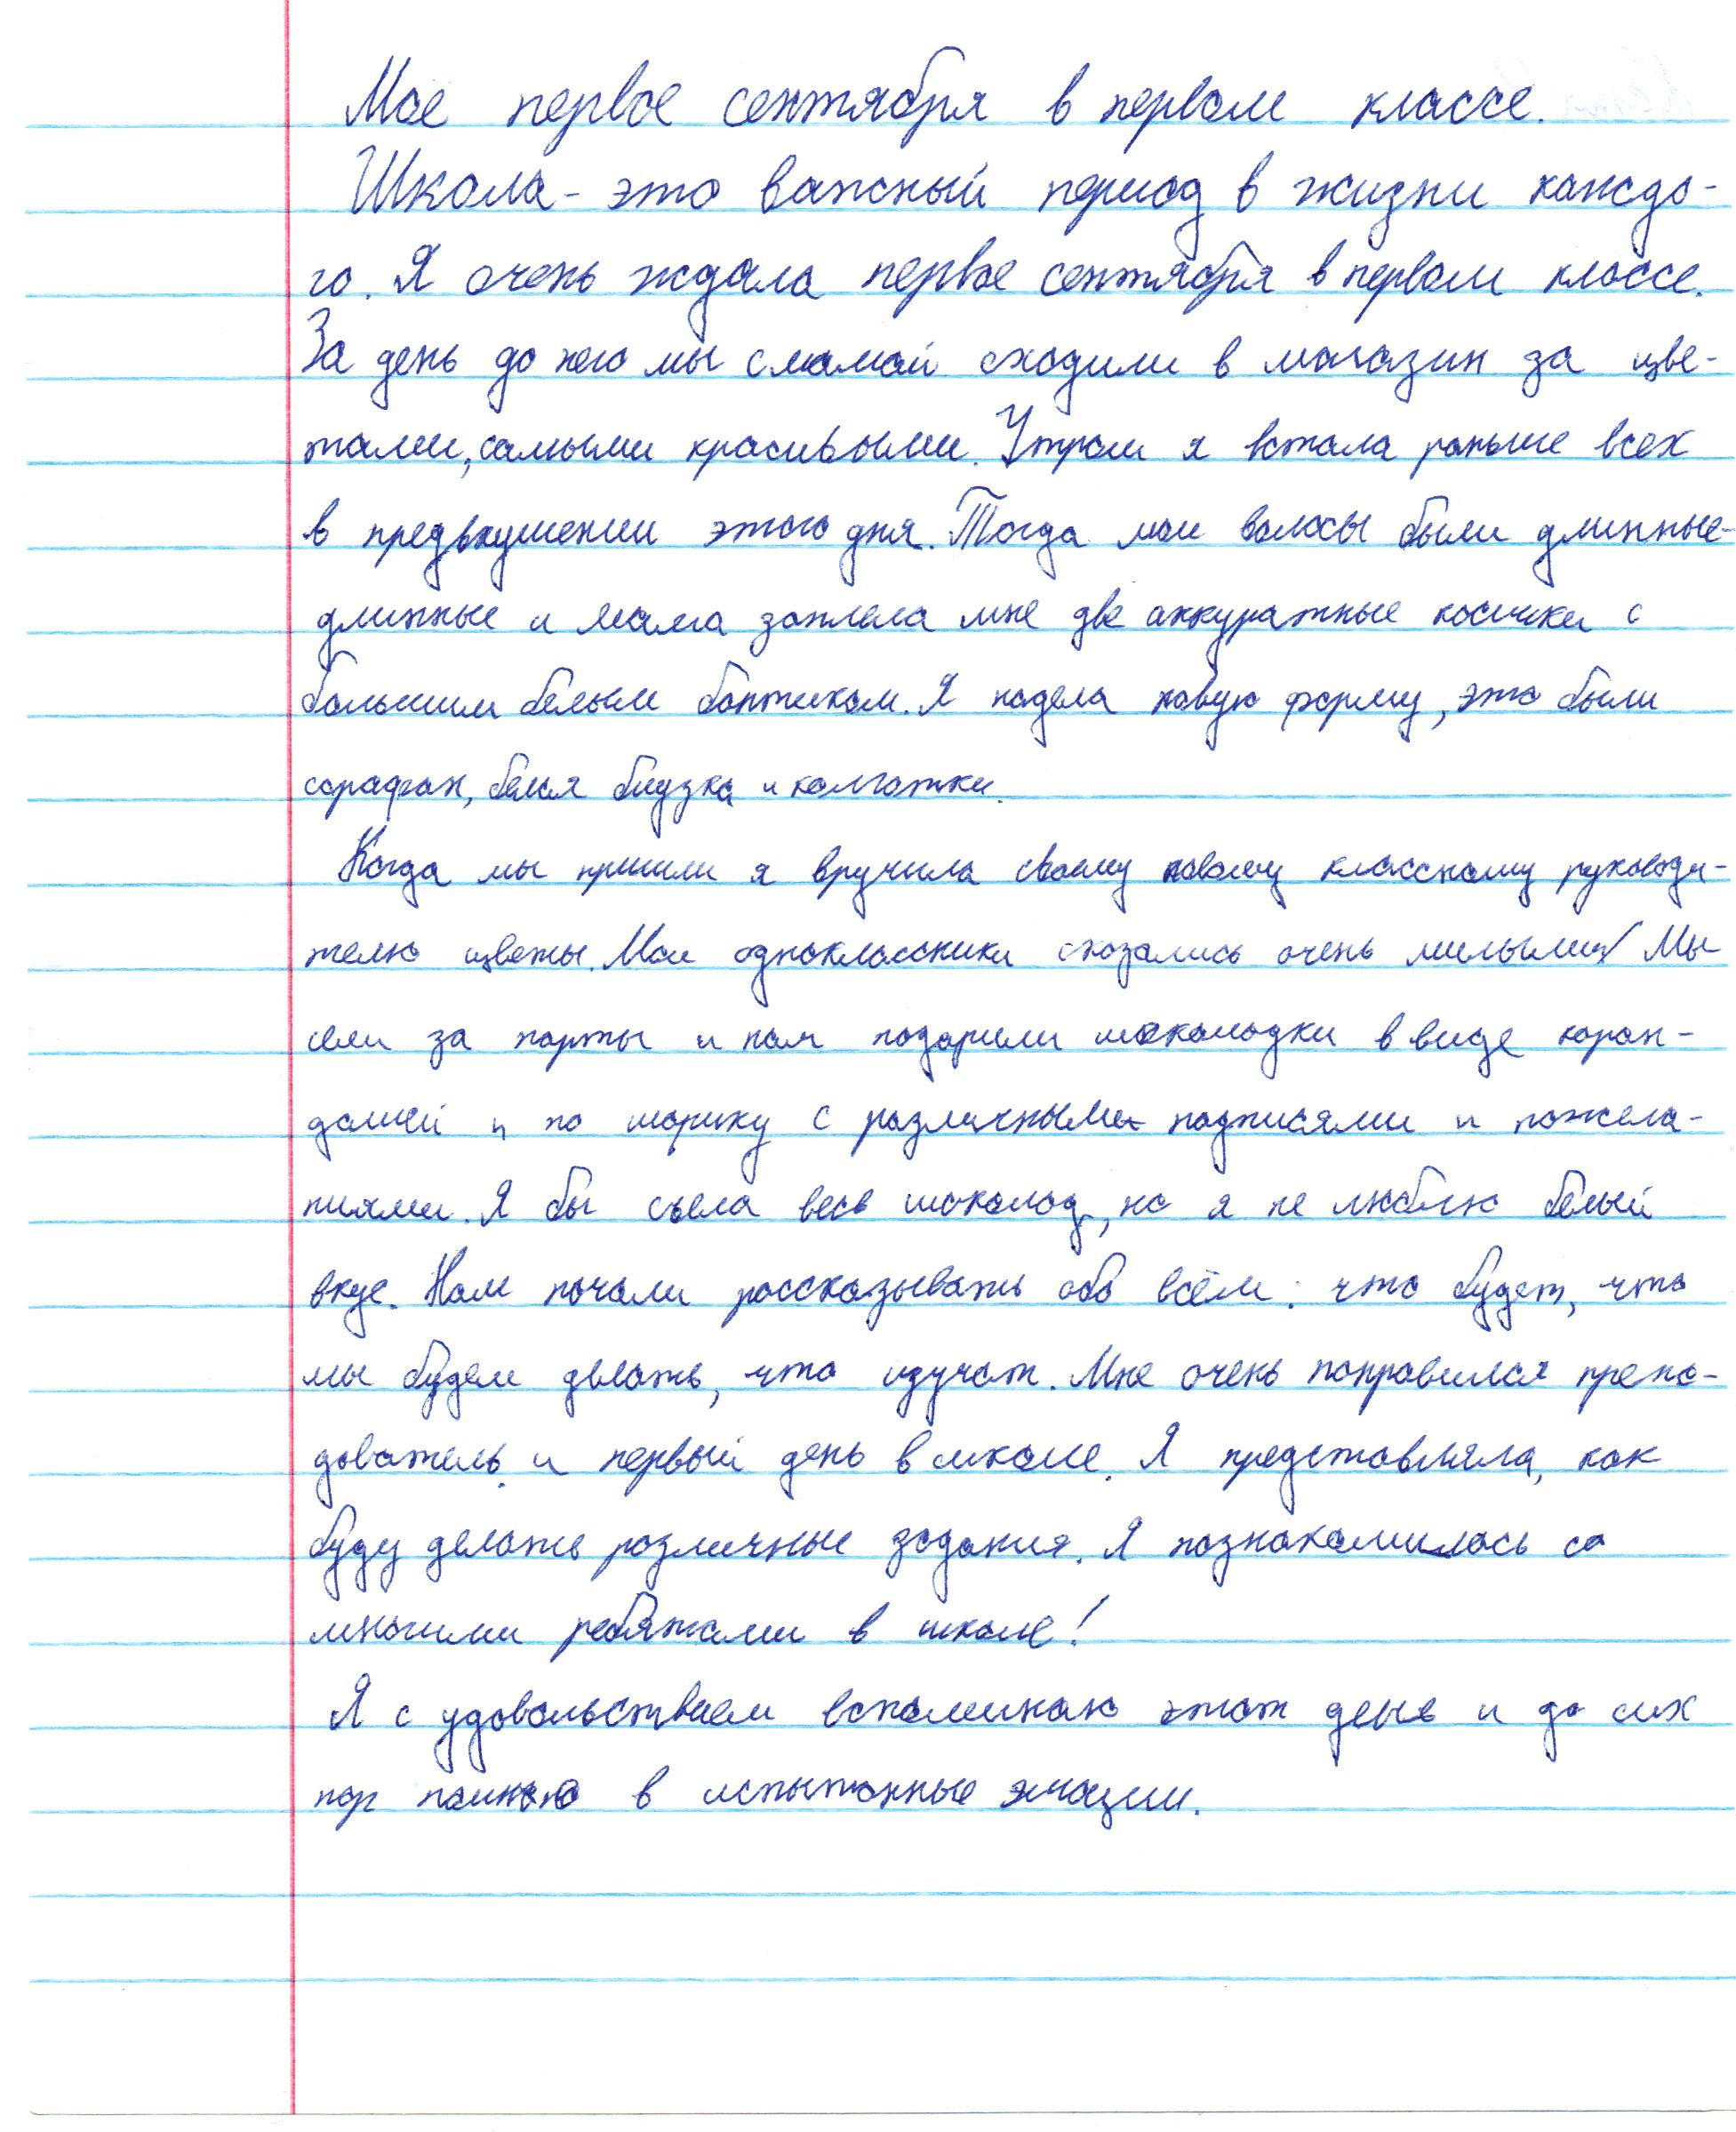 Моё первое сентября в первом классе.
Школа - это важный период в жизни каждо-
го. Я очень ждала первое сентября в первом классе.
За день до него мы с мамой сходили в магазин за цве-
тами, самыми красивыми. Утром я встала раньше всех
в предвкушении этого дня. Тогда мои волосы были длинные-
длинные и мама заплела мне две аккуратные косички с
большим белым бантиком. Я надела новую форму, это были
сарафан, белая блузка и колготки.
Когда мы пришли я вручила своему новому классному руководи-
телю цветы. Мои одноклассники оказались очень милыми! Мы
сели за парты и нам подарили шоколадки в виде каран-
дашей и по шарику с различными подписями и пожела-
ниями. Я бы съела весь шоколад, но я не люблю белый
вкус. Нам начали рассказывать обо всём: что будет, что
мы будем делать, что изучат. Мне очень понравился препо-
даватель и первый день в школе. Я представляла, как
буду делать различные задания. Я познакомилась со
многими ребятами в школе!
Я с удовольствием вспоминаю этот день и до сих
пор помню в испытанные эмоции.